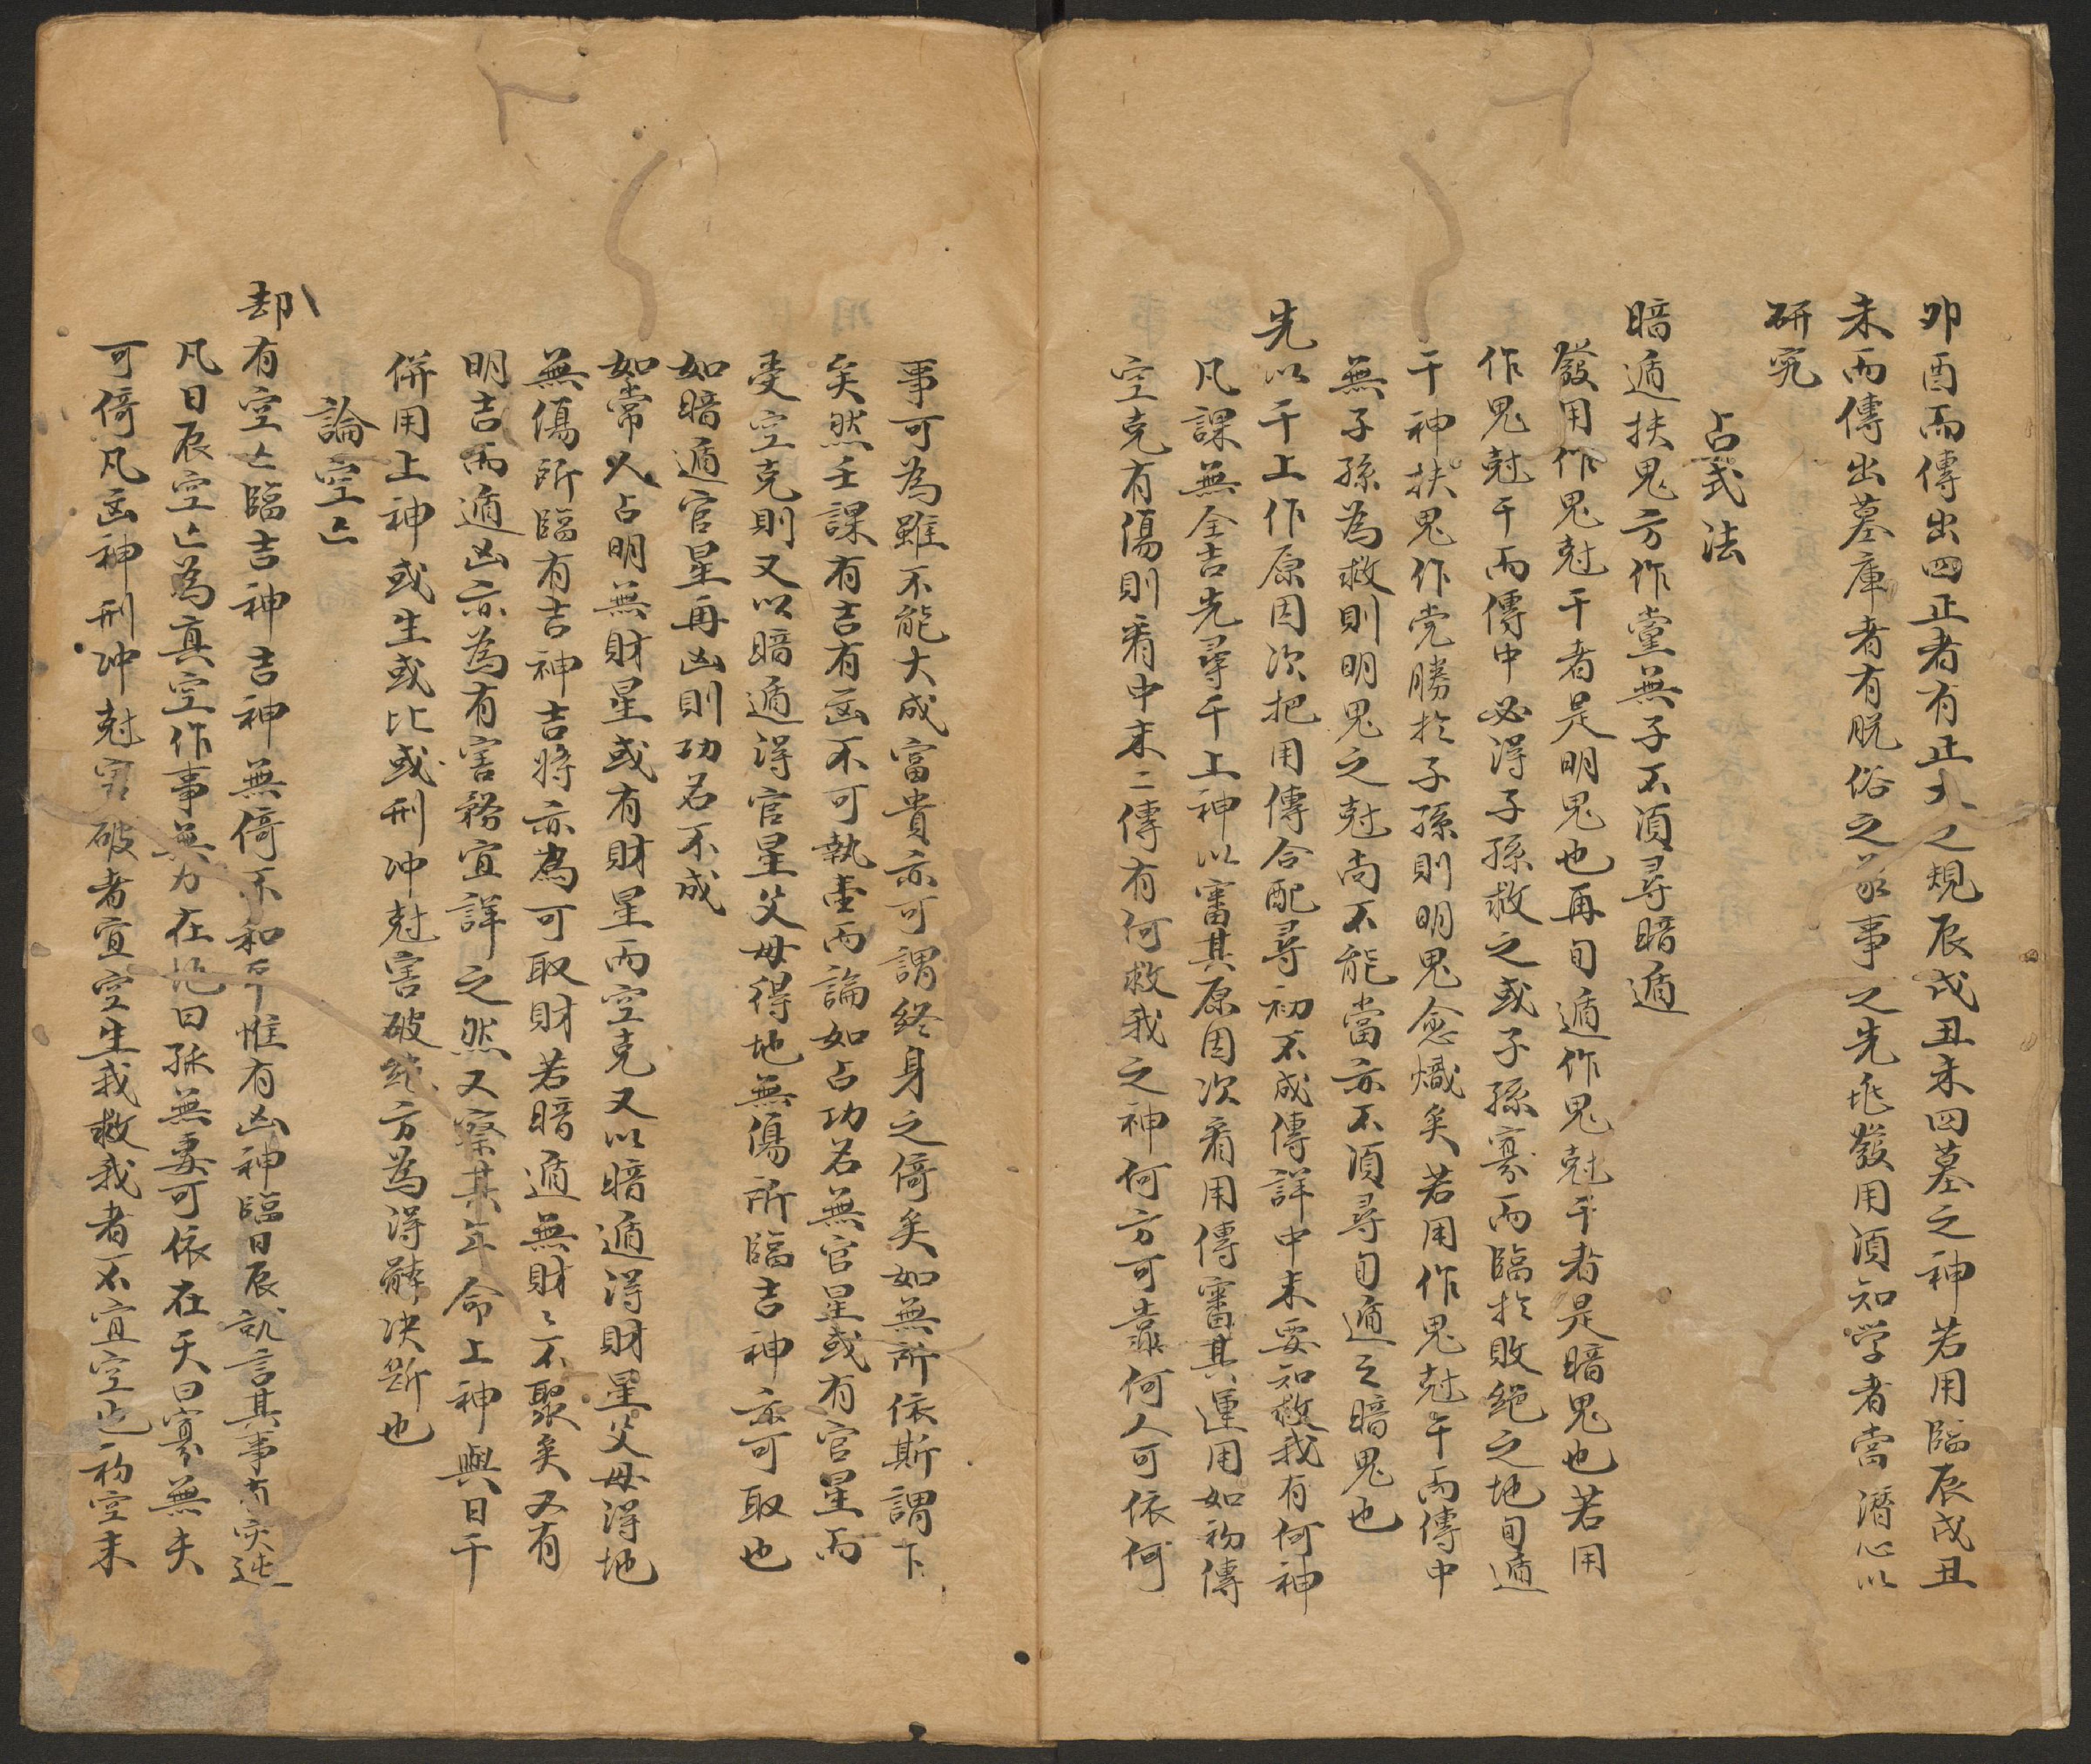 卯酉而傳出四正者有正大之規辰戌丑未四墓之神若用臨辰戌丑
未而傳出墓庫者有脫俗之事之先飛發用須知学者當潛心以
研究
占式法
暗遁扶鬼方作黨無子不須尋暗遁
發用作鬼尅干者是明鬼也再旬遁作鬼尅干者是暗鬼也若用
作鬼尅干而傳中必得子孫救之或子孫寡而臨扵敗絕之地旬遁
干神扶鬼作党勝扵子孫則明鬼愈熾矣若用作鬼尅干而傳中
無子孫為救則明鬼之尅尚不能當亦不須尋旬遁之暗鬼也
先以干上作原因次把用傳合配尋初不成傳詳中末要知救我有何神
凡課無全吉先尋干上神以審其原因次看用傳審其運用如初傳
空克有傷則看中末二傳有何救我之神何方可靠何人可依何
事可為雖不能大成富貴亦可謂終身之倚矣如無所依斯謂下
矣然壬課有吉有凶不可執壹而論如占功名無官星或有官星而
受空克則又以暗遁得官星父母得地無傷所臨吉神亦可取也
如暗遁官星再凶則功名不成
如常人占明無財星或有財星而空克又以暗遁得財星父母得地
無傷所臨有吉神吉將亦為可取財若暗遁無財〻不聚矣又有
明吉而遁凶亦為有害務宜詳之然又察其年命上神與日干
併用上神或生或比或刑冲尅害破絕方為得解決斷也
論空亡
却有空亡臨吉神吉神無倚不和平惟有凶神臨日辰就言其事有灾迍
凡日辰空亡為真空作事無力在地曰孤無妻可依在天曰寡無夫
可倚凡凶神刑冲尅害破者宜空生我救我者不宜空也初空末